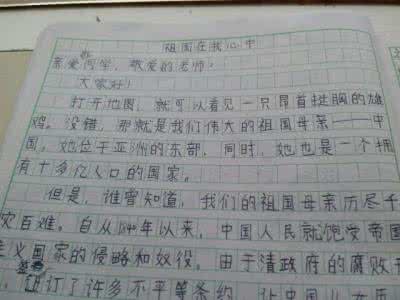 祖国在我心中
亲爱的同学,敬爱的老师:
大家好!
打开地图,就可以看见一只昂首挺胸的雄
鸡。没错,那就是我们伟大的祖国母亲——中
国。她位于亚洲的东部,同时,她也是一个拥
有十多亿人口的国家。
但是,谁曾知道,我们的祖国母亲历尽千
灾百难。自从1840年以来,中国人民就饱受帝国
主义国家的侵略和奴役。由于清政府的腐败
签订了许多不平等条约,让中国